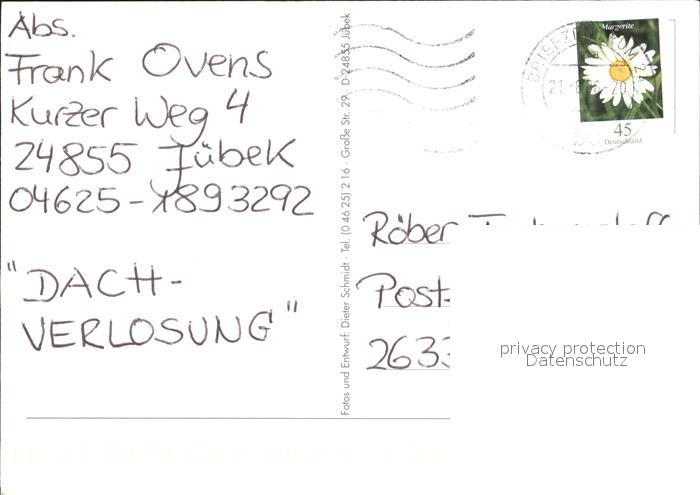 Abs.
Frank Ovens
Kurzer Weg 4
24855 Jübek
04625-1893292
"DACH-
VERLOSUNG"
Fotos und Entwurf: Dieter Schmidt · Tel. (0 46 25) 2 16 · Große Str. 29 · D-24855 Jübek
BRIEFZ
21.-8
Margerite
45
Deutschland
Röber
Post-
2633
privacy protection
Datenschutz